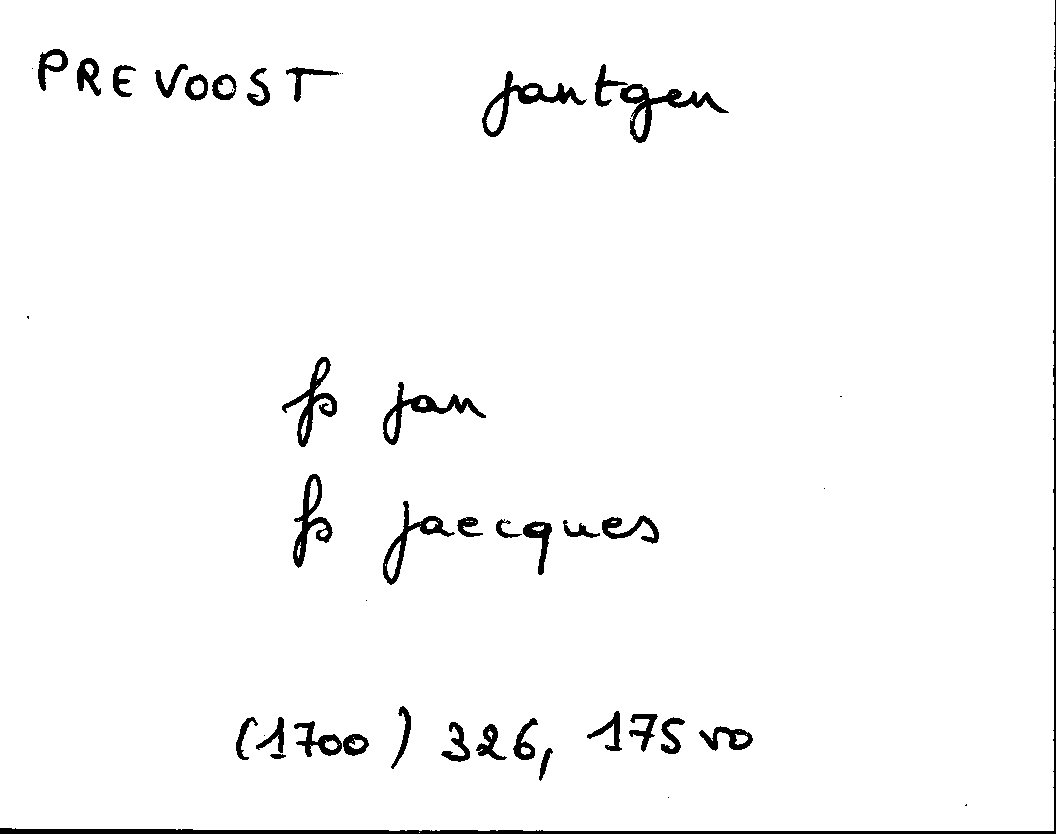 PREVOOST jantgen
fs jan
fs jaecques
(1700) 326, 175 vo